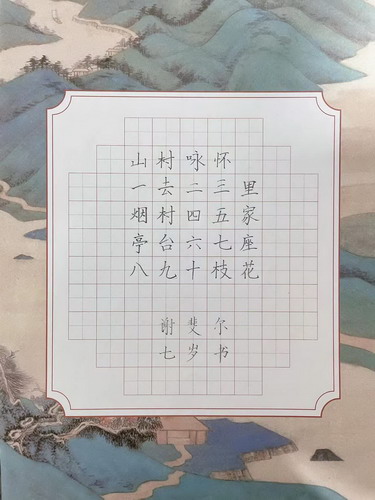 山村咏怀
一去二三里
烟村四五家
亭台六七座
八九十枝花
谢斐尔
七岁书